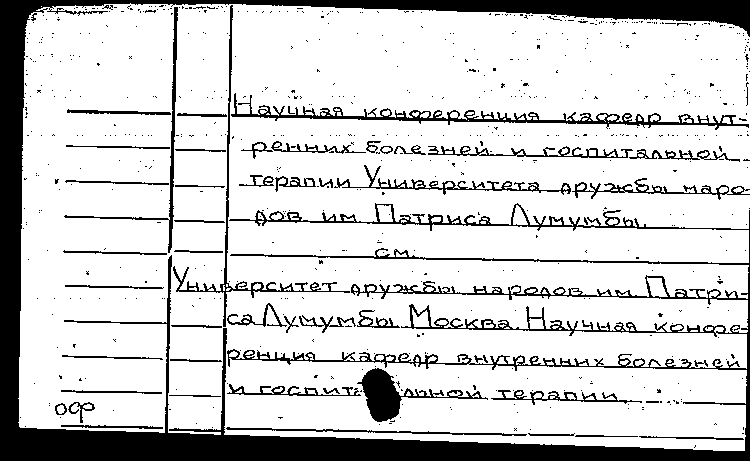 Научная конференция кафедр внут-
ренних болезней и госпитальной
терапии Университета дружбы наро-
дов им Патриса Лумумбы.
см.
Университет дружбы народов им. Патри-
са Лумумбы Москва. Научная конфе-
ренция кафедр внутренних болезней
и госпит льной терапии.
оср